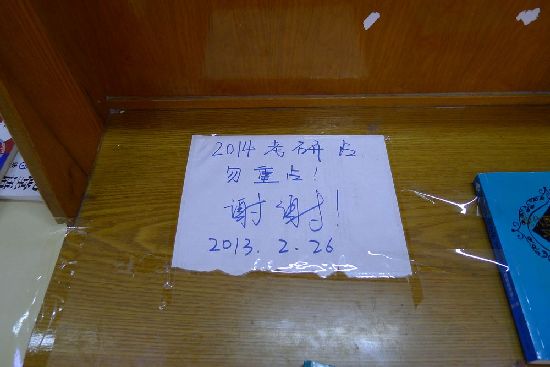 2014 考研占
勿重占!
谢谢!
2013. 2. 26